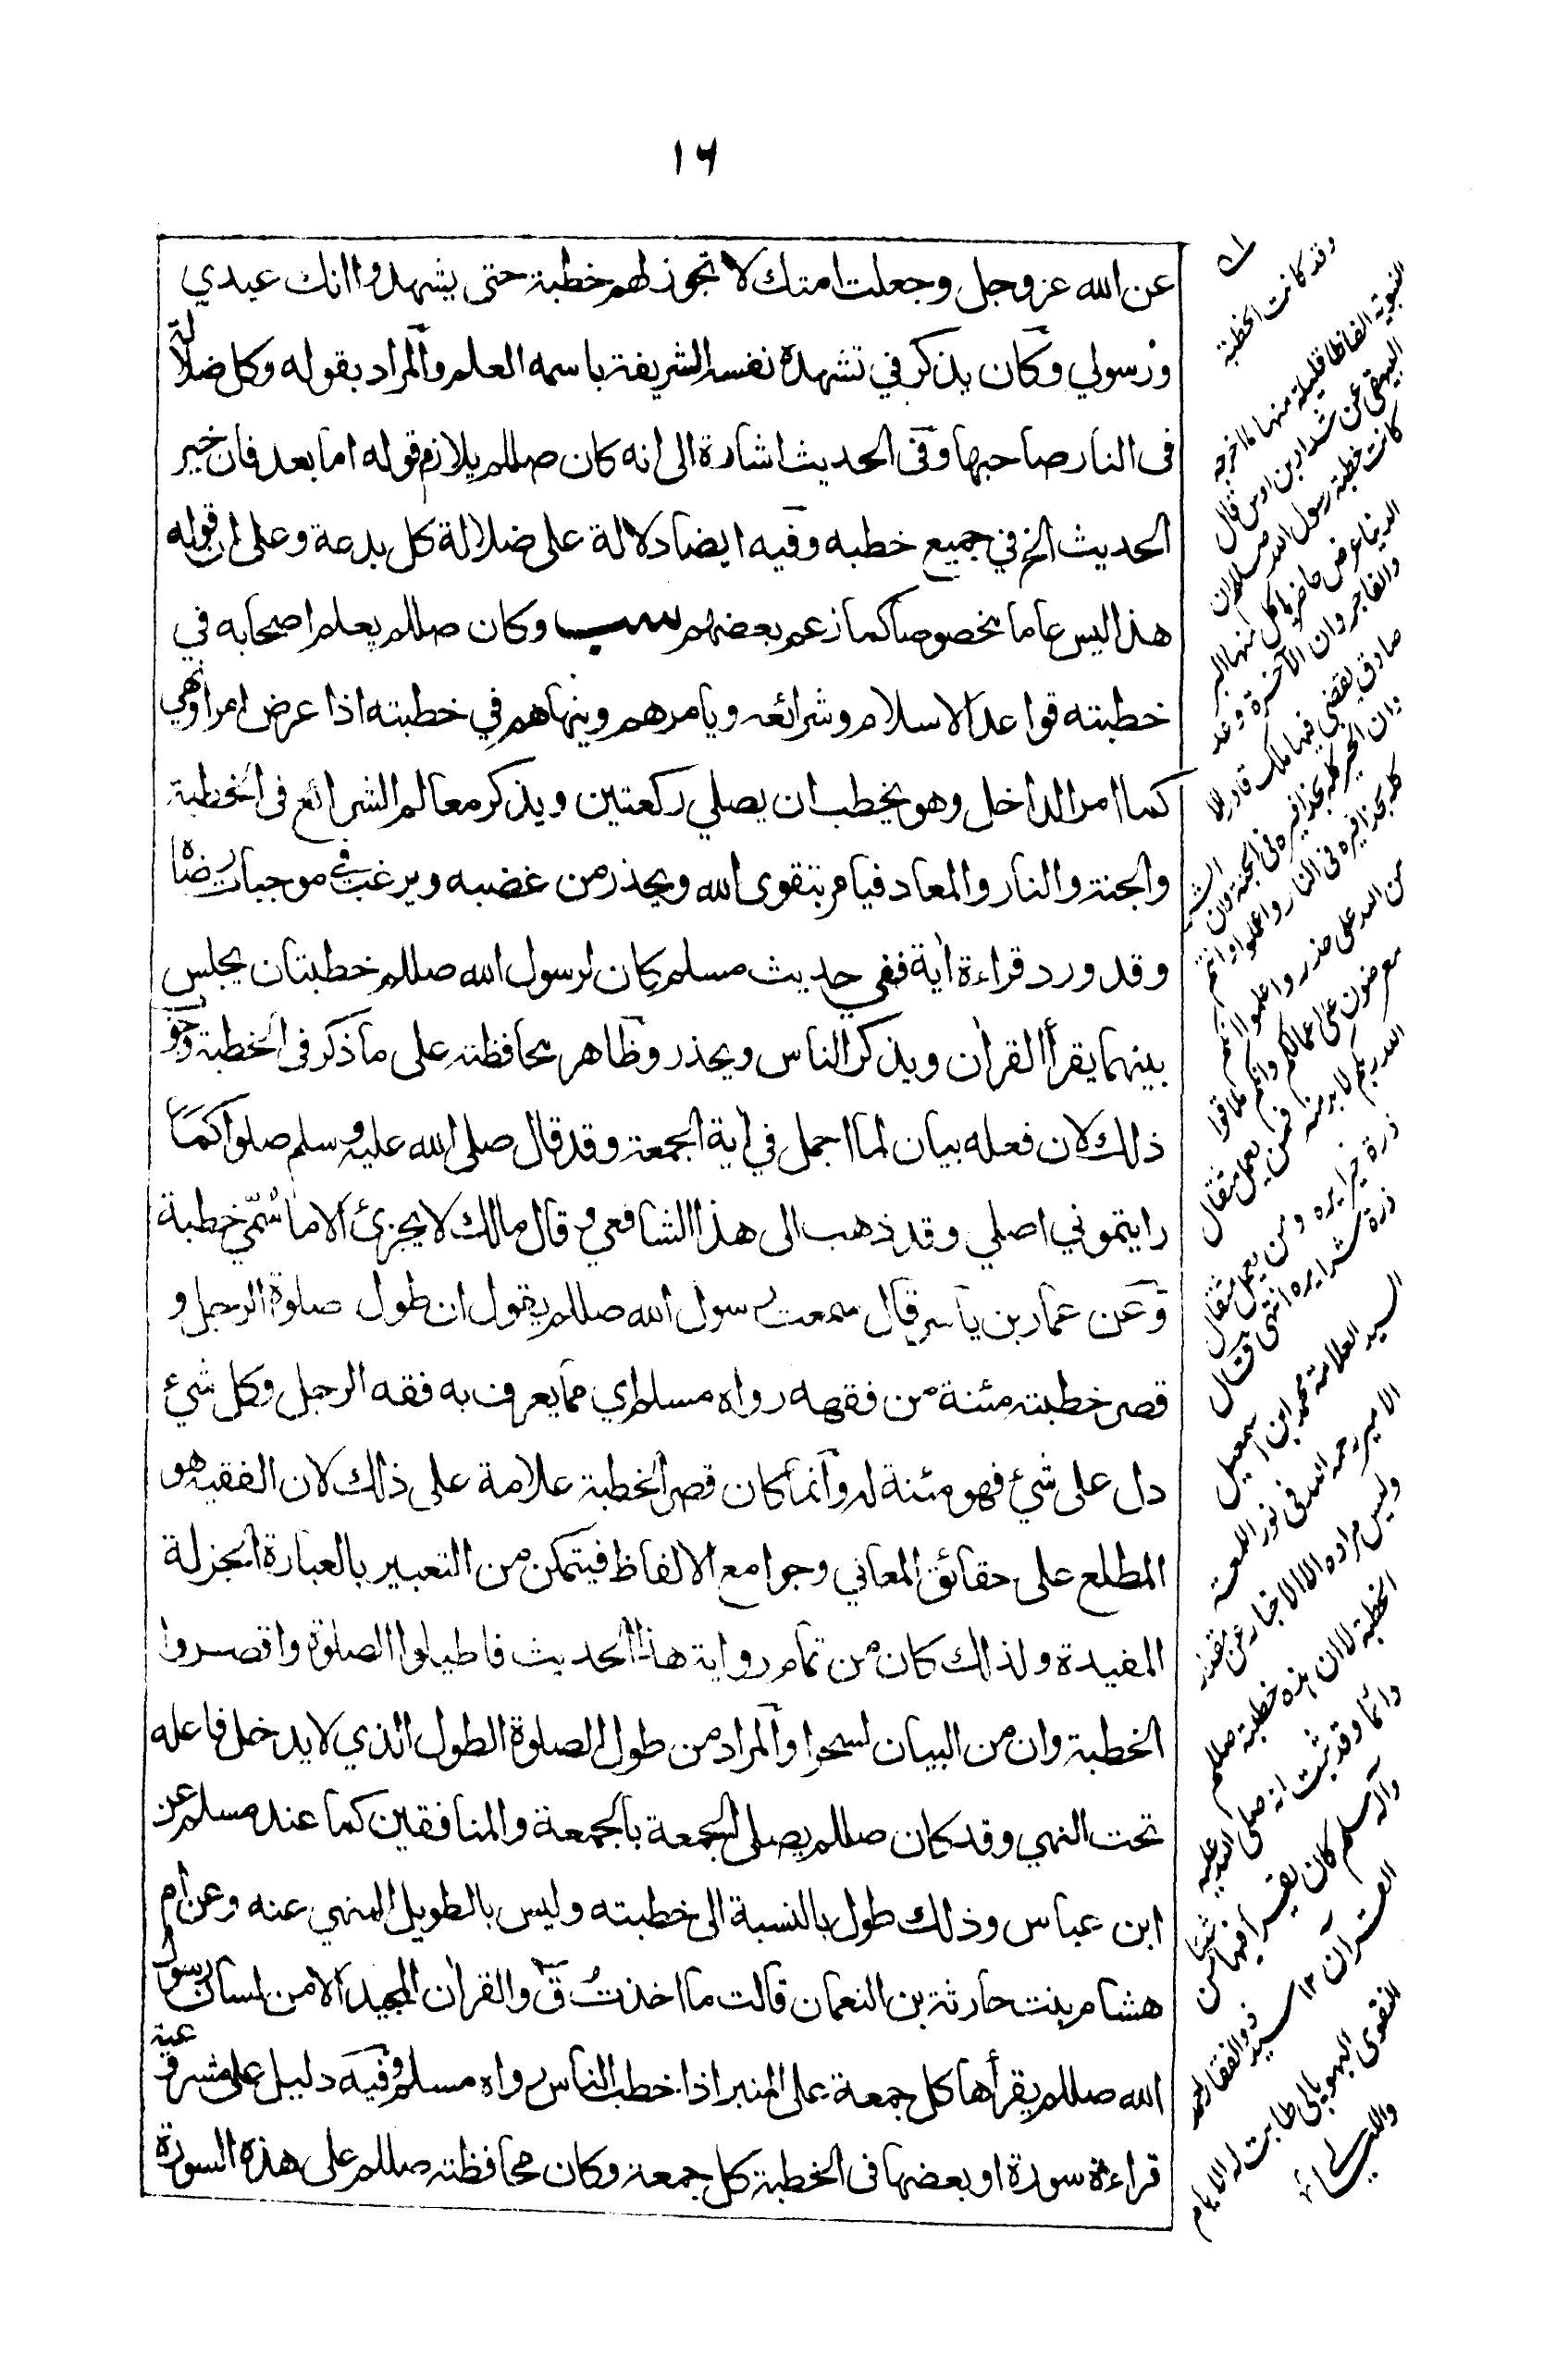 ١٦
عن الله عز وجل وجعلت امتك لا تجوز لهم خطبة حتى يشهدوا انك عبدي
ورسولي وكان يذكر في تشهده نفسه الشريفة باسمه العلم والمراد بقوله وكل ضلالة
فى النار صاحبها وفى الحديث اشارة الى انه كان صللم يلازم قوله اما بعد فان خير
الحديث الخ في جميع خطبه وفيه ايضا دلالة على ضلالة كل بدعة وعلى ان قوله
هذا ليس عاما مخصوصا كما زعم بعضهم وكان صللم يعلم اصحابه في
خطبته قواعد الاسلام وشرائعه ويامرهم وينهاهم في خطبته اذا عرض امر او نهي
كما امر الداخل وهو يخطب ان يصلي ركعتين ويذكر معالم الشرائع فى الخطبة
والجنة والنار والمعاد فيامر بتقوى الله ويحذر من غضبه ويرغب في موجبات رضاه
وقد ورد قراءة اية ففي حديث مسلم كان لرسول الله صللم خطبتان يجلس
بينهما يقرأ القران ويذكر الناس ويحذر وظاهر محافظته على ما ذكر فى الخطبة وجوب
ذلك لان فعله بيان لما اجمل في اية الجمعة وقد قال صلى الله عليه وسلم صلوا كما
رايتموني اصلي وقد ذهب الى هذا الشافعي وقال مالك لا يجزئ الا ما سُمّي خطبة
وعن عمار بن ياسر قال سمعت رسول الله صللم يقول ان طول صلوة الرجل و
قصر خطبته مئنة من فقهه رواه مسلم اي مما يعرف به فقه الرجل وكل شيء
دل على شيء فهو مئنة له وانما كان قصر الخطبة علامة على ذلك لان الفقيه هو
المطلع على حقائق المعاني وجوامع الالفاظ فيتمكن من التعبير بالعبارة الجزلة
المفيدة ولذلك كان من تمام رواية هذا الحديث فاطيلوا الصلوة واقصروا
الخطبة وان من البيان لسحرا والمراد من طول الصلوة الطول الذي لا يدخل فاعله
تحت النهي وقد كان صللم يصلي الجمعة بالجمعة والمنافقين كما عند مسلم عن
ابن عباس وذلك طول بالنسبة الى خطبته وليس بالطويل المنهي عنه وعن ام
هشام بنت حارثة بن النعمان قالت ما اخذتُ ق والقران المجيد الا من لسان رسول
الله صللم يقرأها كل جمعة على المنبر اذا خطب الناس رواه مسلم وفيه دليل على مشروعية
قراءة سورة او بعضها فى الخطبة كل جمعة وكان محافظته صللم على هذه السورة
وقد كانت الخطبة
النبوية الفاظا قليلة منها ما اخرجه
البيهقي عن شداد بن اوس قال
كانت خطبة رسول الله صللم ان
الدنيا عرض حاضر يأكل منها البر
والفاجر وان الآخرة وعد
صادق يقضي فيها ملك قادر الا
وان الخير كله بحذافيره فى الجنة وان الشر
كله بحذافيره فى النار واعلموا وانتم
من الله على حذر واعلموا انكم
معرضون على اعمالكم وانكم ملاقوا
الله ربكم لا بد منه فمن يعمل مثقال
ذرة خيرا يره ومن يعمل مثقال
ذرة شرا يره انتهى قال
السيد العلامة محمد ابن اسمعيل
الامير رحمه الله فى نور اللمعة
وليس مراده الا الاخبار عن قصر
الخطبة لا ان هذه خطبة صللم
دائما وقد ثبت انه صلى الله عليه
وآله وسلم كان يقرأ فيها شيئا من
القرآن ١٢ سيد ذو الفقار احمد
النقوى البهوبالي طابت له الايام
والليالي